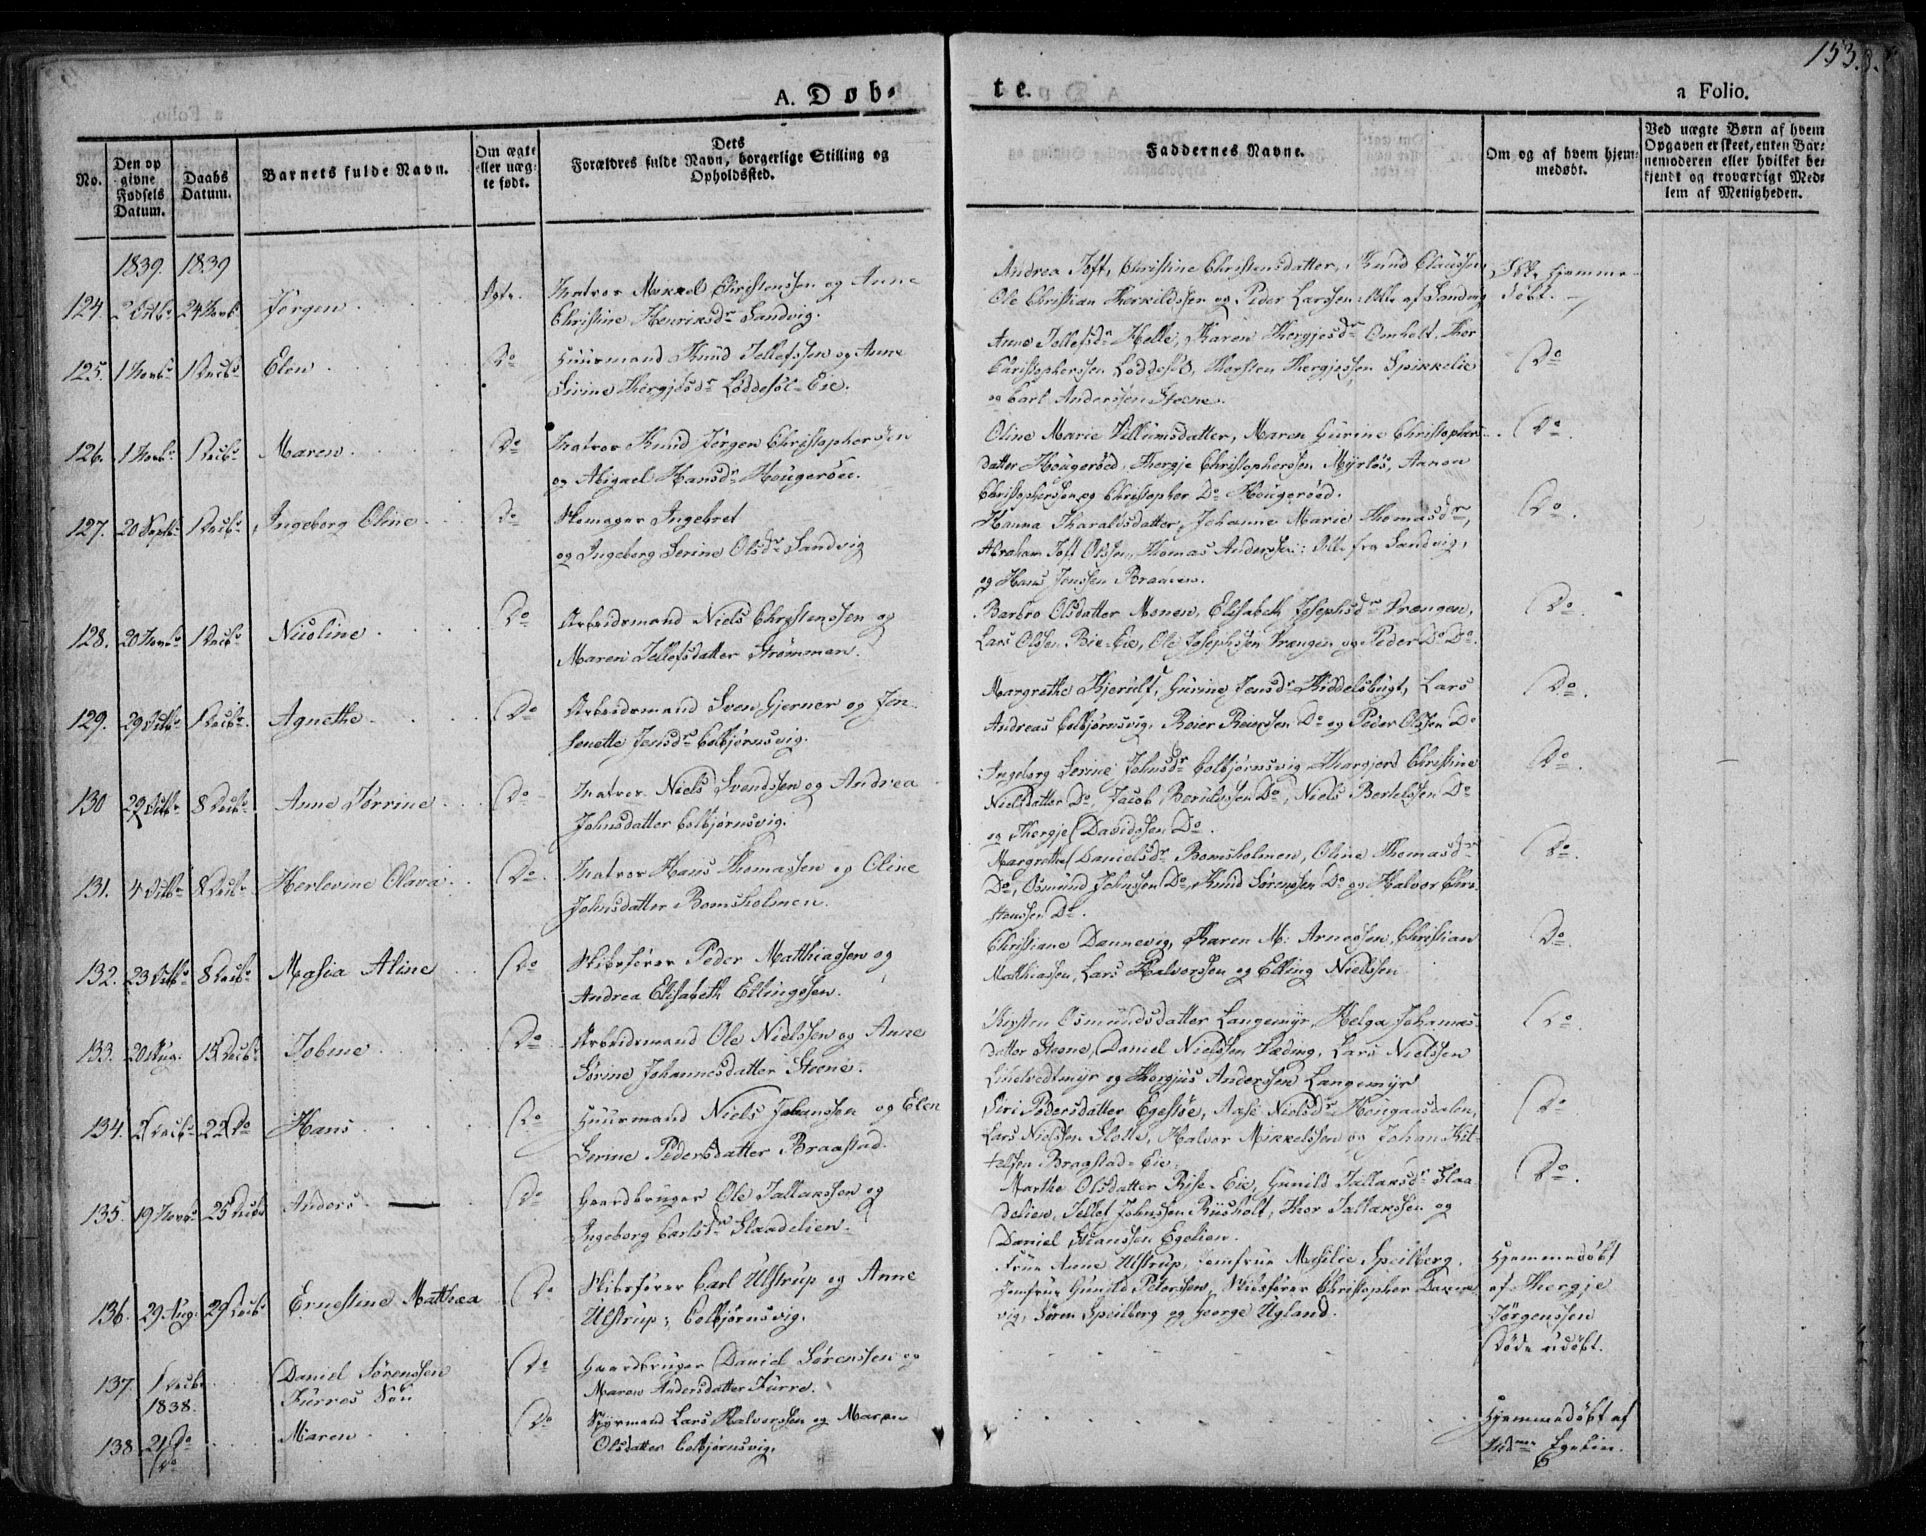 153.
A. Døb-
te.
a Folio.
No.
Den op
givne
Fødsels
Datum.
Daabs
Datum.
Barnets fulde Navn.
Om ægte
eller uæg-
te født.
Dets
Forældres fulde Navn, borgerlige Stilling og
Opholdssted.
Faddernes Navne.
Om og af hvem hjem-
medøbt.
Ved uægte Børn af hvem
Opgaven er skeet, enten Bar-
nemoderen eller hvilket be-
kjendt og troværdigt Med-
lem af Menigheden.
1839. 1839
124. 2 Octb. 24 Novb. Jørgen Ægte. Matros Mikael Christenssen og Anne
Christine Henriksdr Sandvig.
Andrea Toft, Christine Christensdatter, Knud Claussen
Ole Christian Therkildssen og Peder Larssen: Alle af Sandvig
Ikke hjemme-
døbt.
125. 1 Novb. 1 Decbr Elen Do Huurmand Knud Tellefssen og Anne
Sirine Thergjesdr Løddesøl-Eie.
Anne Tellefsdr Helle, Karen Thergjesdr Omholt, Thor
Christophersen Løddesøl, Thorsten Thergjessen Spikkelie
og Carl Anderssen Steene.
Do
126. 1 Novbr 1 Decbr Maren Do Matros Knud Jørgen Christophersen
og Abigael Hansdr Hougerøed.
Oline Marie Villumsdatter, Maren Gurine Christophers-
datter Hougerøed, Thergje Christophersen Myrløs, Aanon
Christophersen og Christopher Do Hougerøed.
Do.
127. 20 Septb. 1 Decbr Ingeborg Oline Do Skomager Ingebret
og Ingeborg Serine Olsdr Sandvig
Hanna Tharaldsdatter, Johanne Marie Thomasdr,
Abraham Toft Olssen, Thomas Anderssen: Alle fra Sandvig,
og Hans Jenssen Braaten.
Do.
128. 20 Novbr 1 Decbr Nicoline Do Arbeidsmand Niels Christenssen og
Maren Tellefsdatter Strømmen.
Barbro Olsdatter Monen, Elisabeth Josephsdr Vrængen,
Lars Olssen Bie-Eie, Ole Josephssen Vrængen og Peder Do Do.
Do.
129. 29 Octbr 1 Decbr. Agnethe Do Arbeidsmand Sven Gjerner og Jen-
senette Jensdr Colbjørnsvig.
Margrethe Kjerulf, Gurine Jensdr Kiddelsbugt, Lars
Andreas Colbjørnsvig, Reier Reierssen Do og Peder Olssen Do
Do.
130 29 Octbr 8 Decbr Anne Torrine Do Matros Niels Svendssen og Andrea
Johnsdatter Colbjørnsvig.
Ingeborg Serine Johnsdr Colbjørnsvig, Thargjerd Christine
Nielsdatter Do, Jacob Do, Niels Bertelssen Do
og Thergje Davidssen Do.
Do.
131. 4 Octbr 8 Decbr Herlevine Olava Do. Matros Hans Thomassen og Oline
Johnsdatter Bomsholmen.
Margrethe Danielsdr Bomsholmen, Oline Thomasdr
Do, Osmund Johnssen Do, Knud Sørenssen Do og Halvor Chri-
stenssen Do.
Do.
132. 23 Octbr 8 Decbr Masia Aline Do Skibsfører Peder Matthiassen og
Andrea Elisabeth Ellingssen.
Christiane Dannevig, Karen M. Arnessen, Christian
Matthiassen, Lars Halvorssen og Elling Nielssen
Do.
133. 20 Aug. 15 Decbr Tobine Do. Arbeidsmand Ole Nielssen og Anne
Sørine Johannesdatter Steene.
Kirsten Osmundsdatter Langemyr, Helga Johannes-
datter Steene, Daniel Nielssen Væding, Lars Nielssen
Lindtvedtmyr og Thergjus Anderssen Langemyr
Do.
134. 2 Decbr 22 Do Hans Do Huurmand Niels Johanssen og Elen
Serine Pedersdatter Braastad.
Siri Pedersdatter Egestøe, Aase Nielsdr Hougaasdalen,
Lars Nielssen Slotte, Halvor Mikkelssen og Johan Kit-
telsen Bragstad-Eie.
Do
135. 19 Novbr 25 Decbr Anders Do Gaardbruger Ole Tallakssen og
Ingeborg Carlsdr Slaadelien.
Marthe Olsdatter Rise-Eie, Gunild Tallaksdr Slaa-
delien, Tellef Johnssen Riisholt, Thor Tallakssen og
Daniel Egelien.
Do.
136. 29 Aug. 29 Decbr Ernestine Matthea Do Skibsfører Carl Ulstrup og Anne
Ulstrup, Colbjørnsvig.
Frue Anne Ulstrup, Jomfrue Speilberg,
Jomfrue Gunild Peterssen, Skibsfører Christopher Danne-
vig, Søren Speilberg og George Ugland.
Hjemmedøbt
af Thergje
Jørgenssen
137. 1 Decbr Daniel Sørenssen
Furres Søn Do Gaardbruger Daniel Sørenssen og
Maren Andersdatter Furre.
Døde udøbt.
1838.
138 21 Do
Do Maren Do Styrmand Lars Halvorssen og Maren
Olsdatter Colbjørnsvig.
Hjemmedøbt af
Egelien.